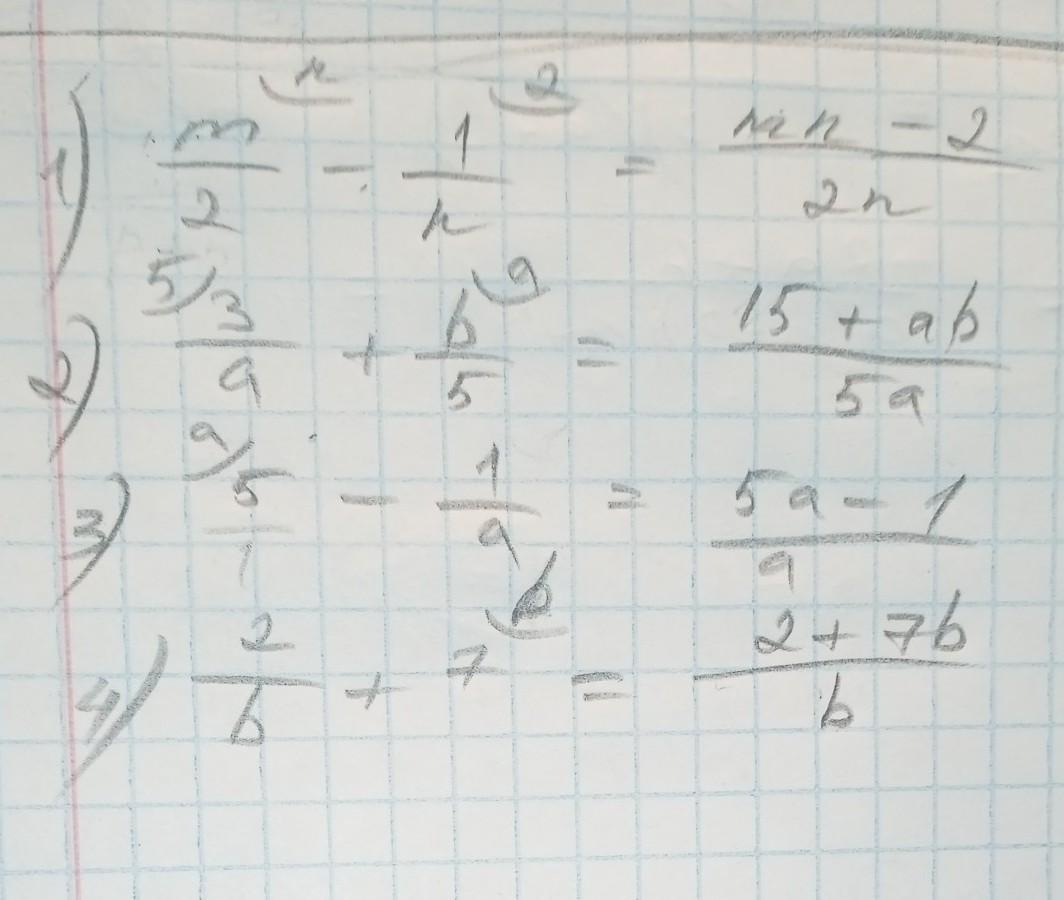 1) m/2 ⁿ⁾ - 1/n ²⁾ = mn - 2/2n
2) ⁵⁾ 3/a + b/5 ᵃ⁾ = 15 + ab/5a
3) ᵃ⁾ 5/1 - 1/a = 5a - 1/a
4) 2/b + 7 ᵇ⁾ = 2 + 7b/b